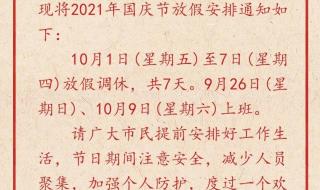 现将2021年国庆节放假安排通知如
下：
10月1日(星期五)至7日(星期
四)放假调休，共7天。9月26日(星
期日)、10月9日(星期六)上班。
请广大市民提前安排好工作生
活，节日期间注意安全，减少人员
聚集，加强个人防护，度过一个欢